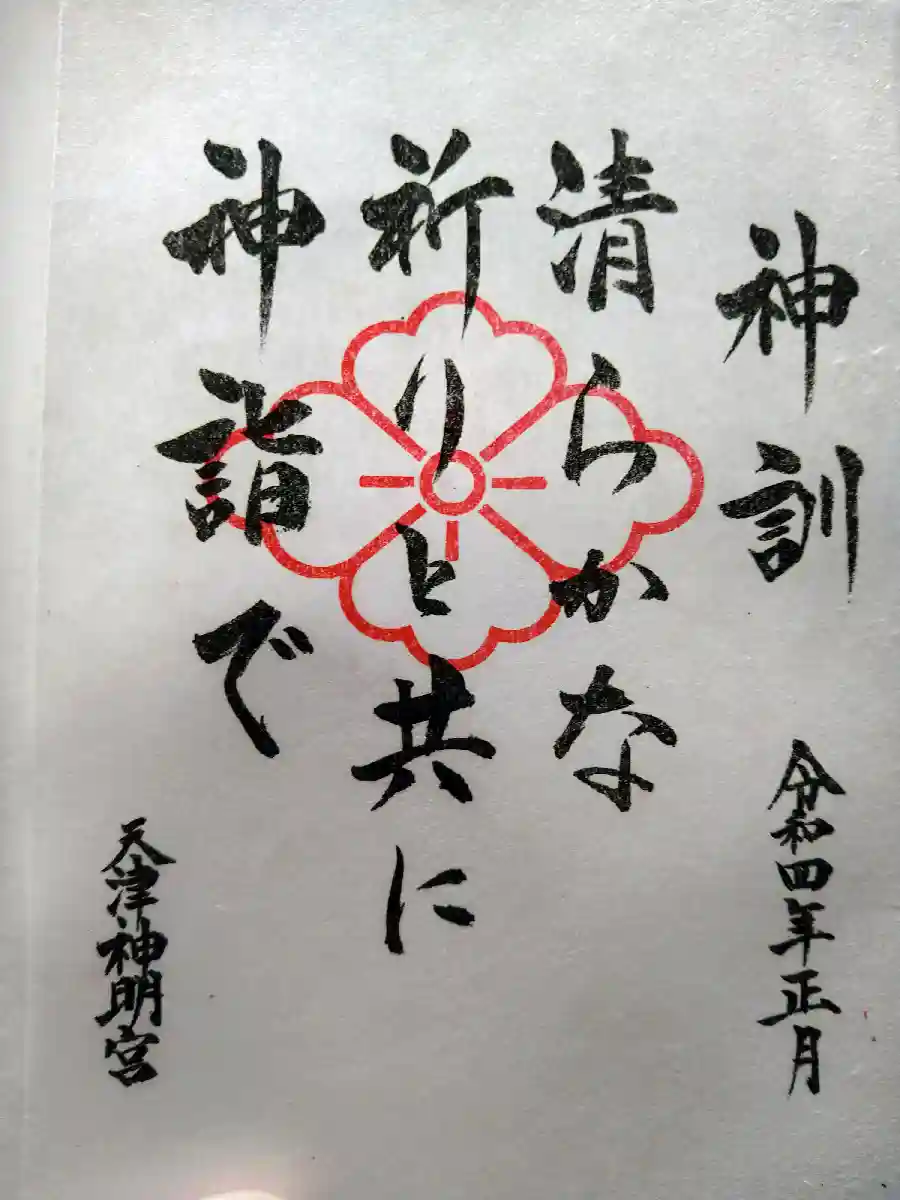 神訓
令和四年正月
清らかな
祈りと共に
神詣で
天津神明宮